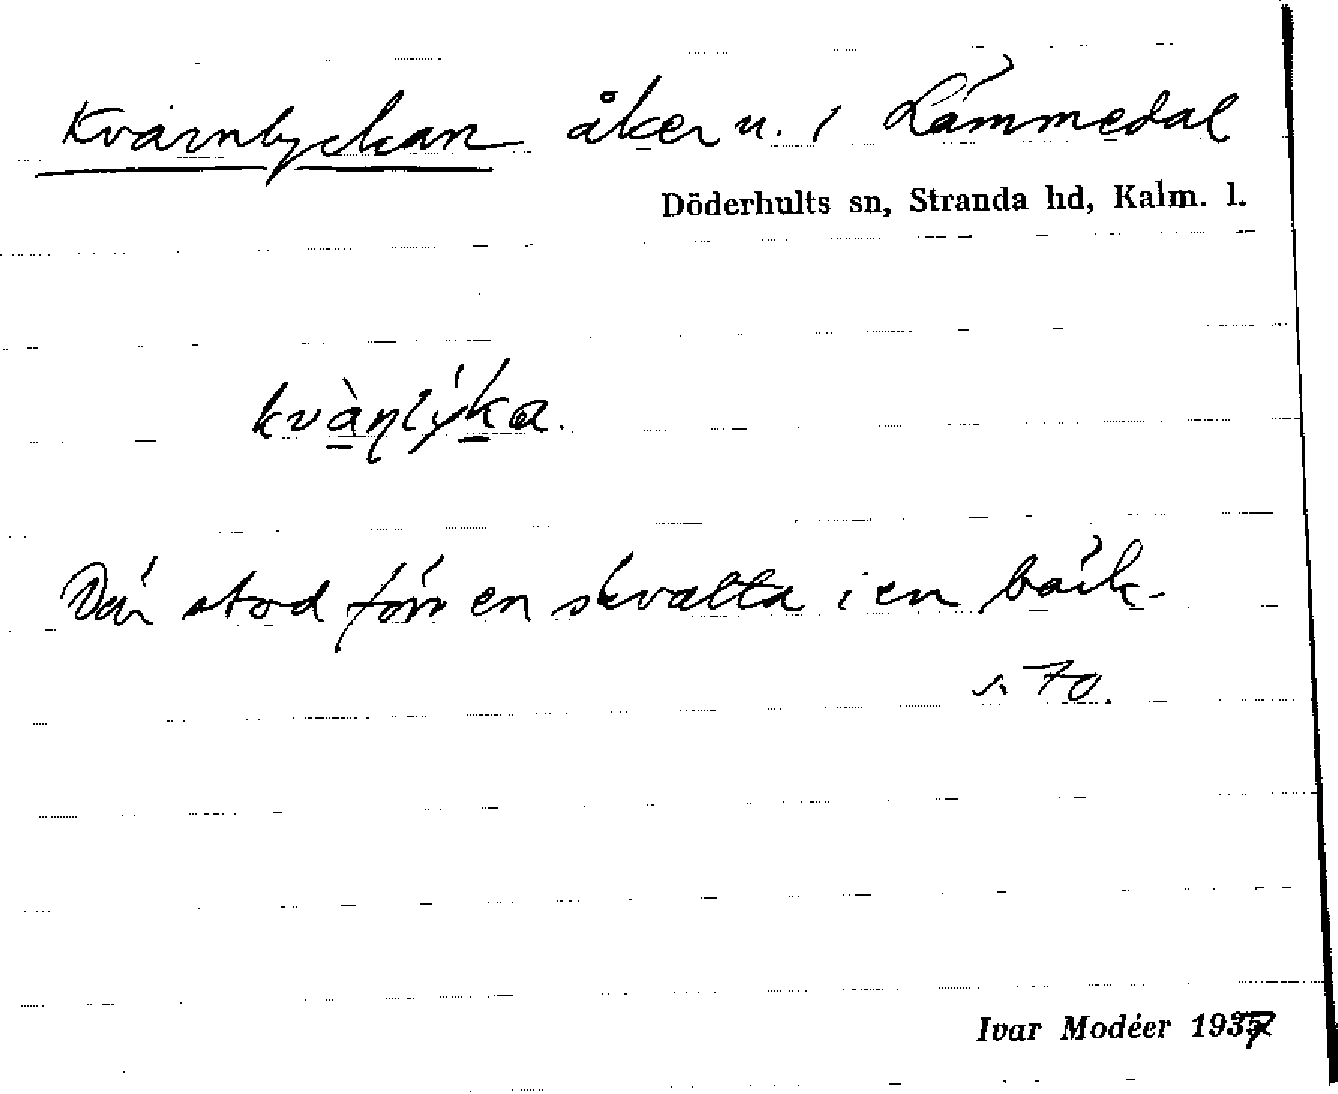 Kvarnlyckan åker u. i Lämmedal
Döderhults sn, Stranda hd, Kalm. l.
kvànlýka.
Där stod förr en skvalta i en bäck.
s. 70.
Ivar Modéer 1937